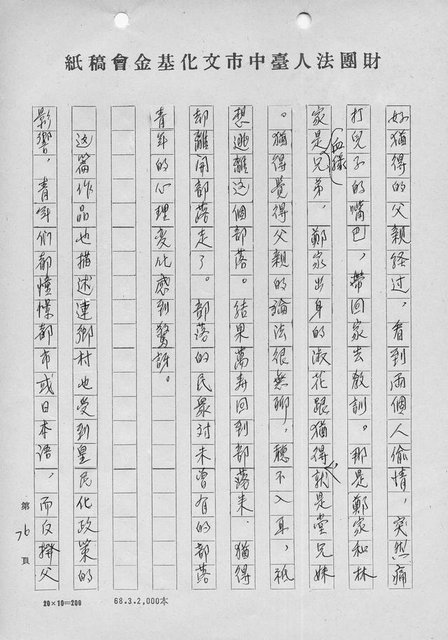 財團法人臺中市文化基金會稿紙
好猶得的父親経过，看到兩個人偷情，突然痛
打兒子的嘴巴，帶回家去教訓。那是鄭家和林
家是血緣兄弟，鄭家出身的淑花跟猶得就是堂兄妹
。猶得覺得父親的論法很無聊，聽不入耳，祇
想逃離這個部落。結果萬壽回到部落來，猶得
却離開部落走了。部落的民眾对未曾有的部落
青年的心理变化感到驚訝。
这篇作品也描述連鄉村也受到皇民化政策的
影響，青年们都憧憬都市或日本语，而反撥父
第76頁
20×10=200
68.3.2,000本